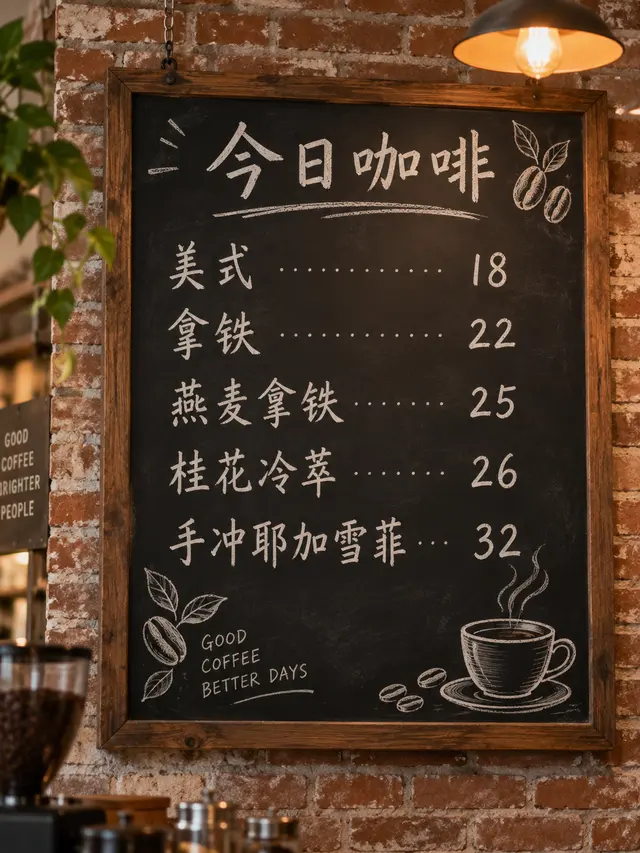 今日咖啡
美式 ………… 18
拿铁 ………… 22
燕麦拿铁 ……… 25
桂花冷萃 ……… 26
手冲耶加雪菲 … 32
GOOD
COFFEE
BETTER DAYS
GOOD
COFFEE
RIGHTER
PEOPLE